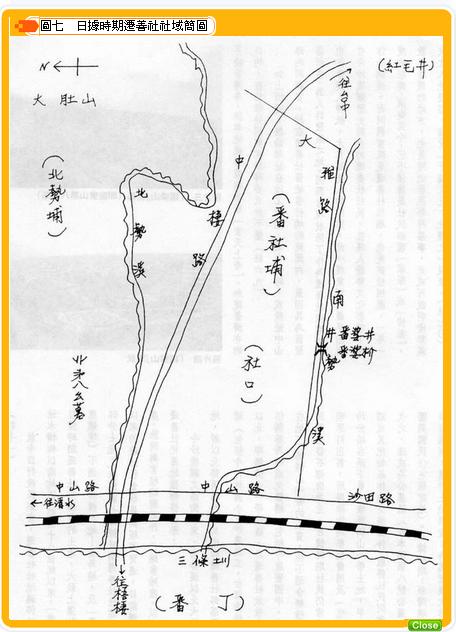 圖七 日據時期遷善社社域簡圖
N
大肚山
(紅毛井)
往台中
(北勢埔)
北勢溪
中棲路
大雅路
(番社埔)
南勢溪
井 番婆井
番婆橋
(社口)
中山路
←往清水
中山路
沙田路
三條圳
往梧棲
(番丁)
Close